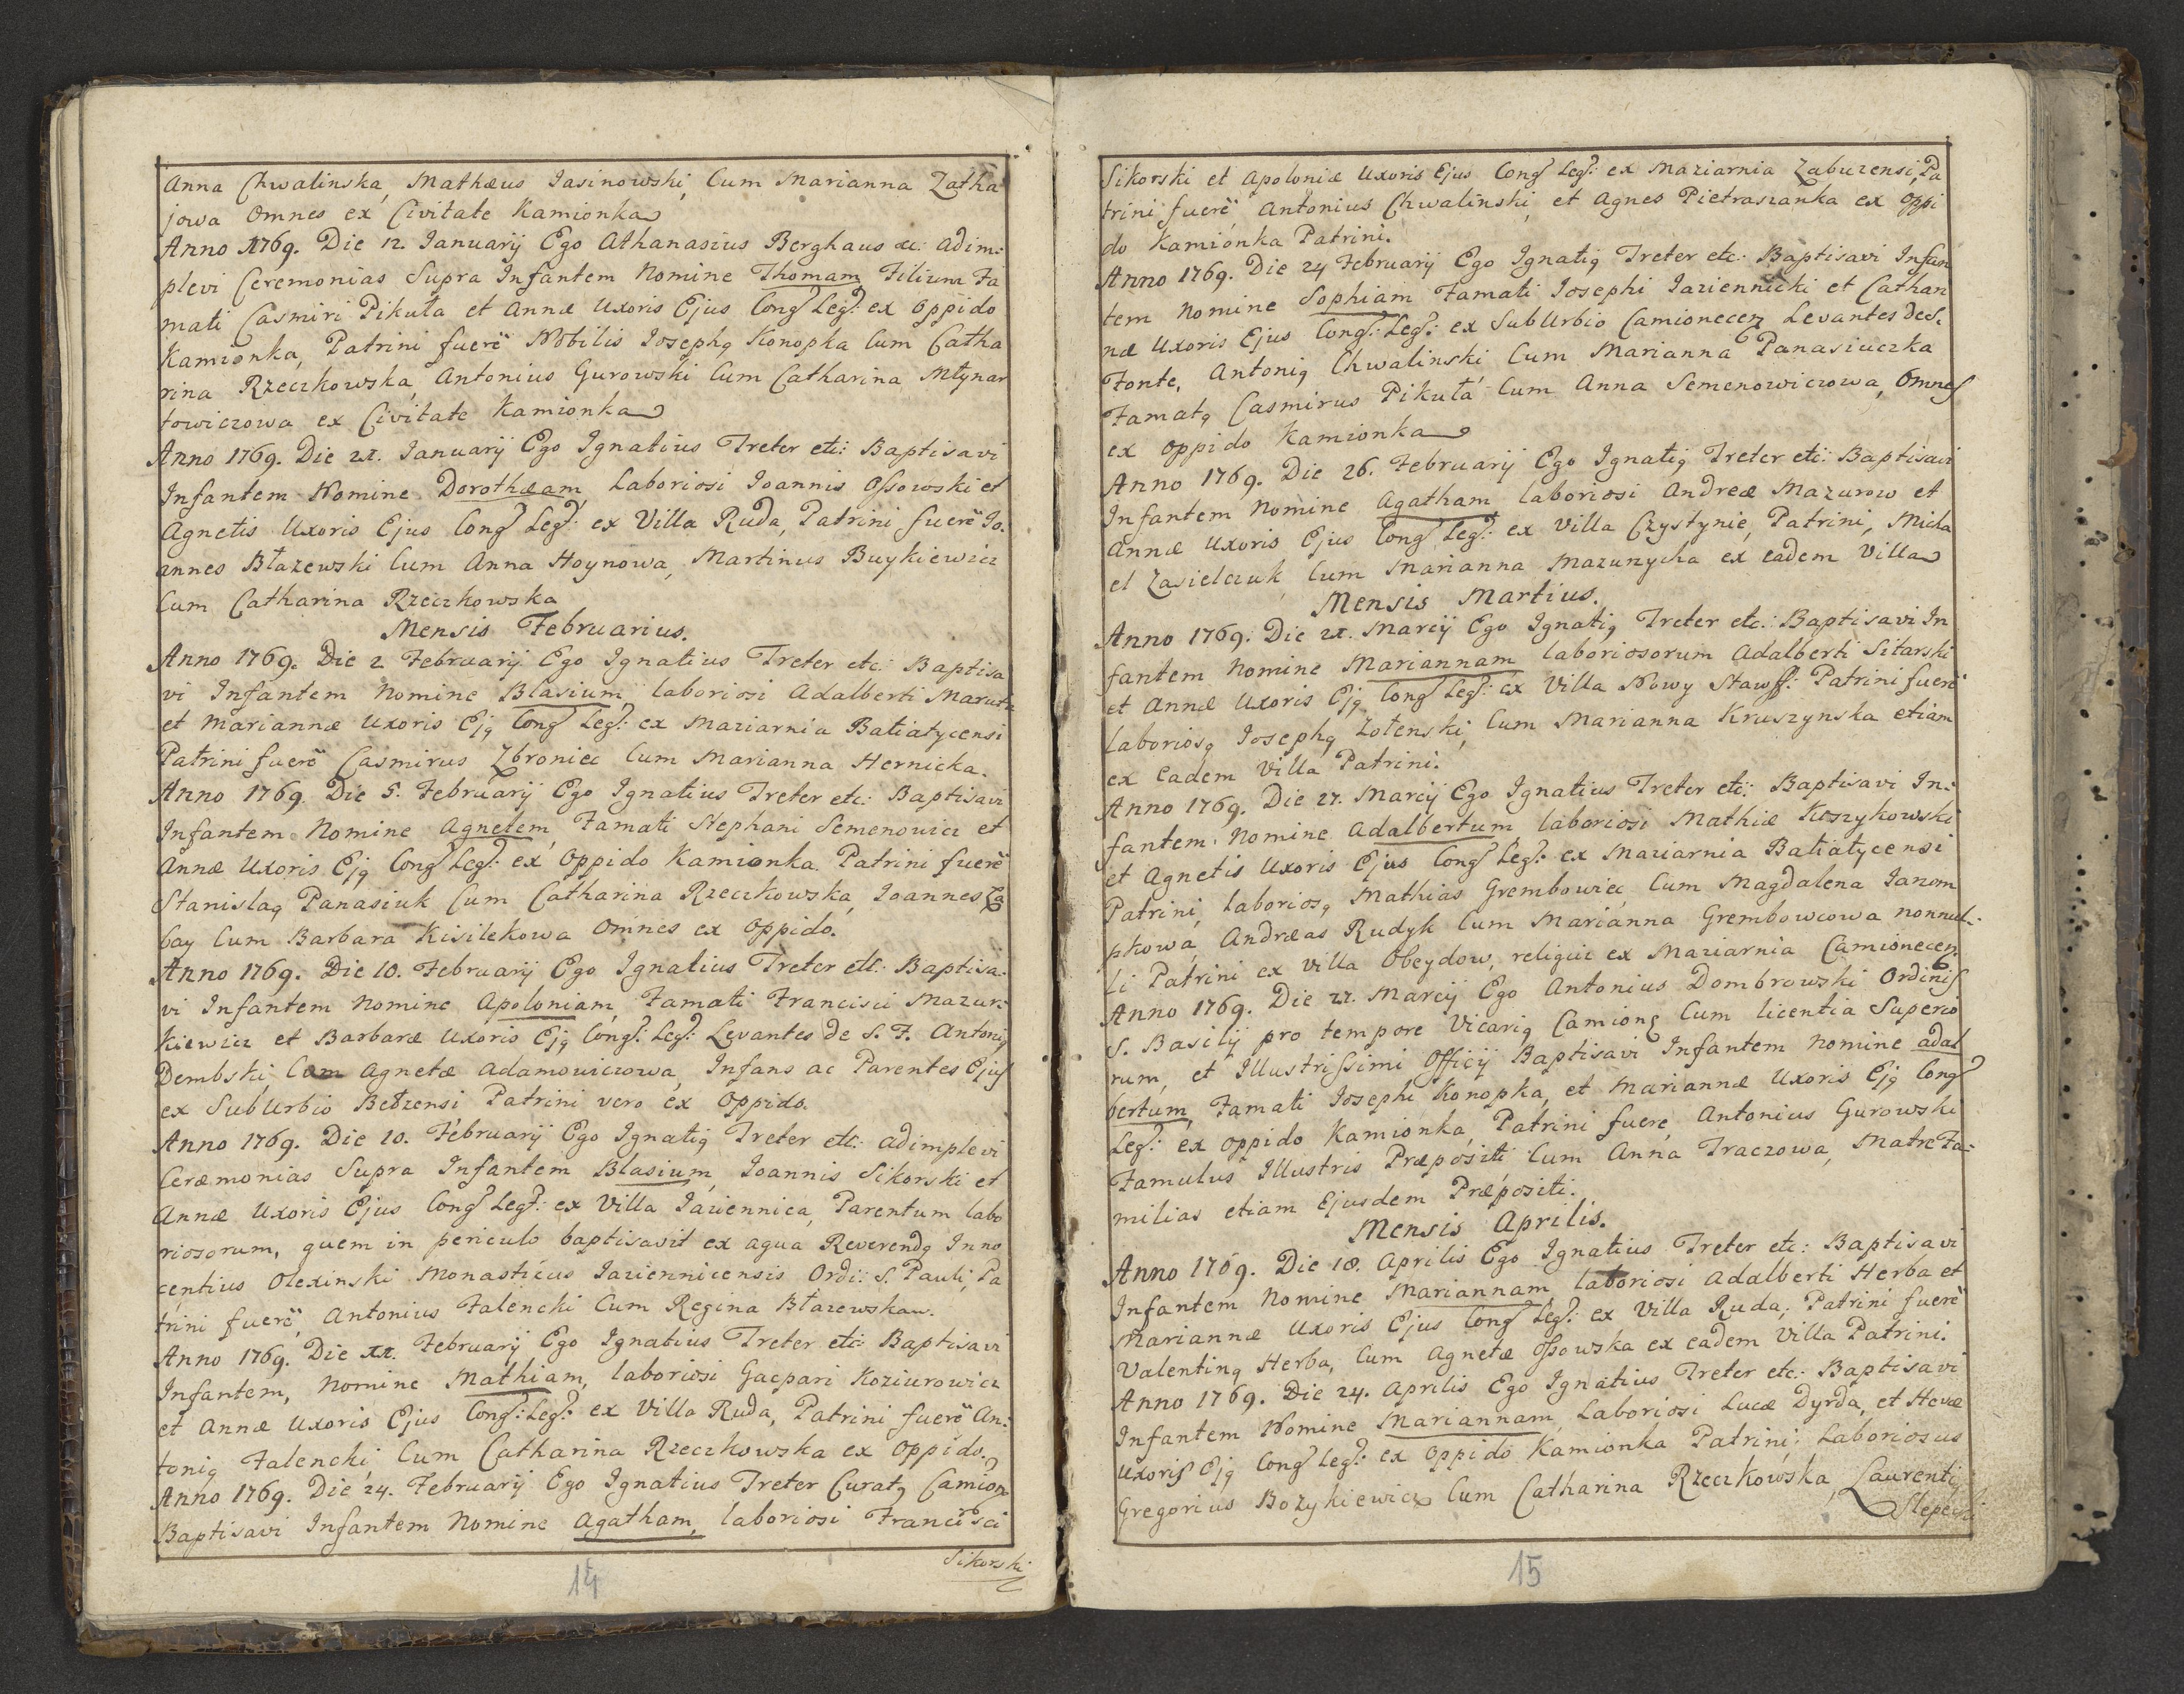 Anna Chwalinska, Mathæus Jasinowski, Cum Marianna Zatha
jowa Omnes ex Civitate Kamionka
Anno 1769. Die 12. Januarÿ Ego Athanasius Berghaus &c: adim:
plevi Ceremonias Supra Infantem Nomine Thomam Filium Fa
mati Casmiri Pikuła et Annæ Uxoris Ejus Cong Leg: ex Oppido
Kamionka, Patrini fuerẽ Nobilis Josephꝗ Konopka Cum Catha
rina Rzeczkowska, Antonius Gurowski Cum Catharina Młynar
towiczowa ex Civitate Kamionka
Anno 1769. Die 21. Januarÿ Ego Ignatius Treter etc: Baptisavi
Infantem Nomine Dorothæam, Laboriosi Joannis Ossowski et
Agnetis Uxoris Ejus Cong Leg: ex Villa Ruda, Patrini fuerẽ Jo.
annes Błazewski Cum Anna Hoynowa, Martinus Buykiewicz
Cum Catharina Rzeczkowska
Mensis Februarius.
Anno 1769. Die 2 Februarÿ Ego Ignatius Treter etc: Baptisa
vi Infantem Nomine Blasium, laboriosi Adalberti
et Mariannæ Uxoris Ejꝗ Cong Leg: ex Maziarnia Batiatycensi
Patrini fuerẽ Casmirus Zbroniec Cum Marianna Hernicka.
Anno 1769. Die 5. Februarÿ Ego Ignatius Treter etc: Baptisavi
Infantem Nomine Agnetem, Famati Stephani Semenowicz et
Annæ Uxoris Ejꝗ Cong Leg: ex Oppido Kamionka. Patrini fuerẽ
Stanislaꝗ Panasiuk Cum Catharina Rzeczkowska, Joannes Ca
bay Cum Barbara Kisilekowa Omnes ex Oppido.
Anno 1769. Die 10. Februarÿ Ego Ignatius Treter etc: Baptisa.
vi Infantem Nomine Apoloniam, Famati Francisci Mazur:
Kiewicz et Barbaræ Uxoris Ejꝗ Cong: Leg: Levantes de S. F. Antoniꝗ
Dembski, Cum Agnetæ Adamowiczowa, Infans ac Parentes Ejus
ex SubUrbio Bełzensi Patrini vero ex Oppido.
Anno 1769. Die 10. Februarÿ Ego Ignatiꝗ Treter etc: adimplevi
Ceræmonias Supra Infantem Blasium, Joannis Sikorski et
Annæ Uxoris Ejus Cong Leg: ex Villa Jaziennica, Parentum labo
riosorum, quem in periculo baptisavit ex aqua Reverendꝗ Inno
centius Olexinski Monasticus Jaziennicensis Ordi: S. Pauli, Pa
trini fuerẽ, Antonius Falencki Cum Regina Błazewska.
Anno 1769. Die 11. Februarÿ Ego Ignatius Treter etc: Baptisavi
Infantem, Nomine Mathiam, laboriosi Gaspari Koziurowicz
et Annæ Uxoris Ejus Cong: Leg: ex Villa Ruda, Patrini fuerẽ An:
toniꝗ Falencki, Cum Catharina Rzeczkowska ex Oppido.
Anno 1769. Die 24. Februarÿ Ego Ignatius Treter Curatꝗ Camion
Baptisavi Infantem Nomine Agatham, laboriosi Francisci
Sikorski
14
Sikorski et Apoloniæ Uxoris Ejus Cong Leg: ex Maziarnia Zabuzensi, Pa
trini fuerẽ Antonius Chwalinski, et Agnes Pietraszanka ex Oppi
do Kamionka Patrini.
Anno 1769. Die 24 Februarÿ Ego Ignatiꝗ Treter etc: Baptisavi Infan
tem Nomine Sophiam Famati Josephi Jaziennicki et Cathari
næ Uxoris Ejus Cong: Leg: ex SubUrbio Camionecen Levantes de S.
Fonte, Antoniꝗ Chwalinski Cum Marianna Panasiuczka
Famatꝗ Casmirus Pikuła Cum Anna Semenowiczowa, Omnes
ex Oppido Kamionka
Anno 1769. Die 26. Februarÿ Ego Ignatiꝗ Treter etc: Baptisavi
Infantem Nomine Agatham laboriosi Andreæ Mazurow et
Annæ Uxoris Ejus Cong Leg: ex Villa Czystynie, Patrini, Micha
el Zasielczuk, Cum Marianna Mazunycha ex eadem Villa
Mensis Martius.
Anno 1769. Die 21. Marcÿ Ego Ignatiꝗ Treter etc.: Baptisavi In
fantem Nomine Mariannam laboriosorum Adalberti Sitarski
et Annæ Uxoris Ejꝗ Cong Leg: ex Villa Nowy Staw: Patrini fuerẽ
Laboriosꝗ Josephꝗ Zołenski, Cum Marianna Kruszynska etiam
ex Eadem Villa Patrini.
Anno 1769. Die 27. Marcÿ Ego Ignatius Treter etc: Baptisavi In:
fantem Nomine Adalbertum, laboriosi Mathiæ Koszykowski
et Agnetis Uxoris Ejus Cong Leg: ex Maziarnia Batiatycensi
Patrini, laboriosꝗ Mathias Grembowiec Cum Magdalena Janom
pkowa, Andræas Rudyk Cum Marianna Grembowcowa nonnul.
li Patrini ex Villa Obeydow, religui ex Maziarnia Camionecen.
Anno 1769. Die 27. Marcÿ Ego Antonius Dombrowski Ordinis
S. Basilÿ pro tempore Vicariꝗ Camionę Cum licentia Superio
rum, et Illustrissimi Officÿ Baptisavi Infantem Nomine Adal
bertum, Famati Josephi Konopka, et Mariannæ Uxoris Ejꝗ Cong
Leg: ex Oppido Kamionka, Patrini fuere, Antonius Gurowski
Famulus Illustris Præpositi Cum Anna Traczowa, Matre Fa:
milias etiam Ejusdem Præpositi.
Mensis Aprilis.
Anno 1769. Die 18. Aprilis Ego Ignatius Treter etc: Baptisavi
Infantem Nomine Mariannam, laboriosi Adalberti Herba et
Mariannæ Uxoris Ejus Cong Leg: ex Villa Ruda; Patrini fuerẽ
Valentinꝗ Herba, Cum Agnetæ Ossowska ex eadem Villa Patrini.
Anno 1769. Die 24. Aprilis Ego Ignatius Treter etc: Baptisavi
Infantem Nomine Mariannam, Laboriosi Lucæ Dyrda, et Hevæ
Uxoris Ejꝗ Cong Leg: ex Oppido Kamionka Patrini, Laboriosus
Gregorius Bozykiewicz Cum Catharina Rzeczkowska, Laurentiꝗ
Slepecki
15